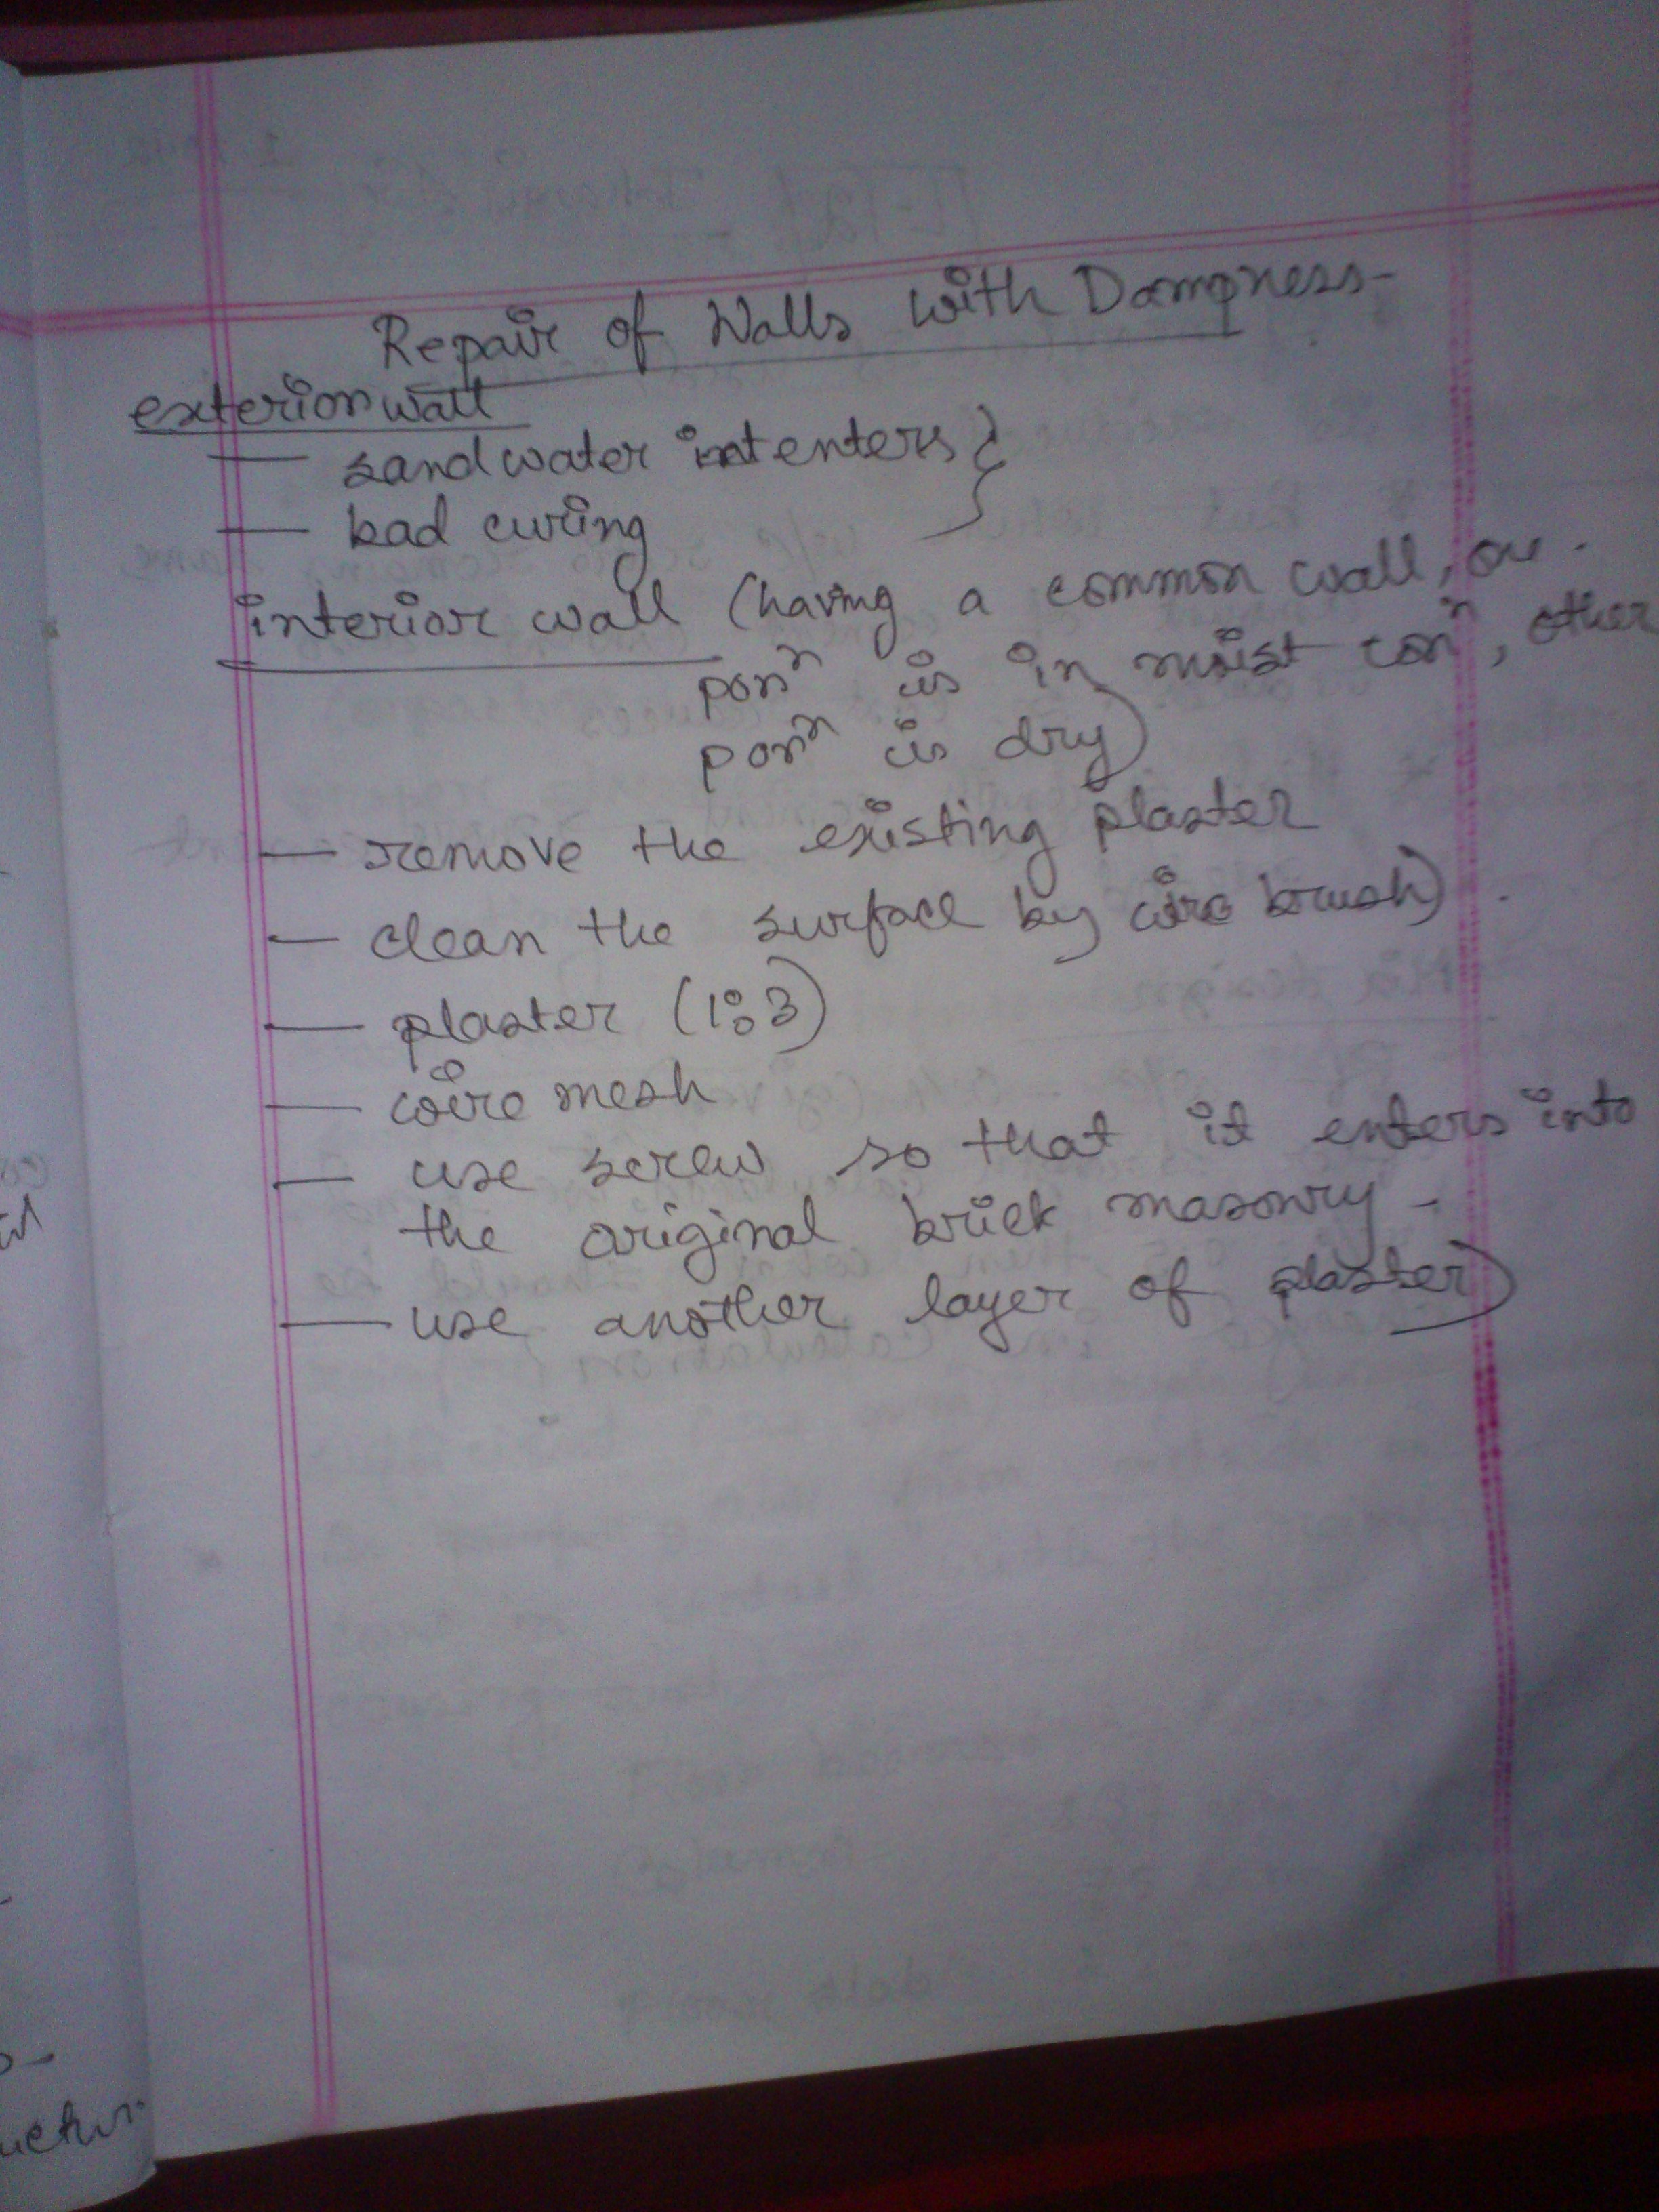 Repair of Walls with Dampness-
exterion wall
— sand water int enters }
— bad curing
interior wall (having a common wall, one
porⁿ is in moist conⁿ, other
porⁿ is dry)
— remove the existing plaster
— clean the surface by wire brush)
— plaster (1:3)
— wire mesh
— use screw so that it enters into
the original brick masonry -
— use another layer of plaster)